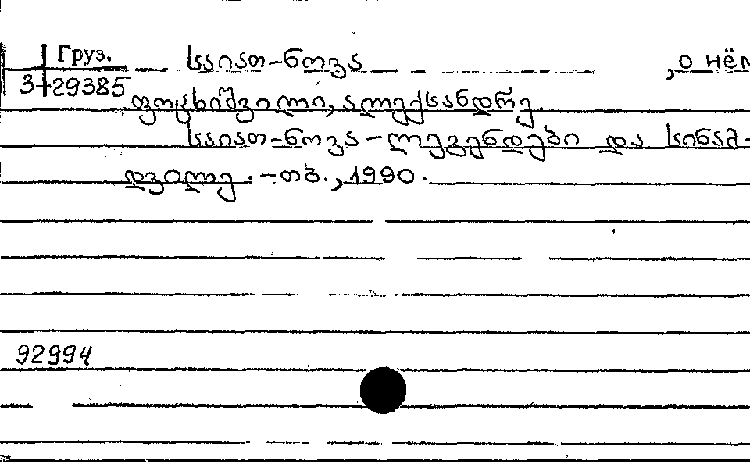 Груз. საიათ-ნოვა , о нём
3-29385
ფოცხიშვილი, ალექსანდრე.
საიათ-ნოვა - ლეგენდები და სინამ-
დვილე. - თბ., 1990.
92994